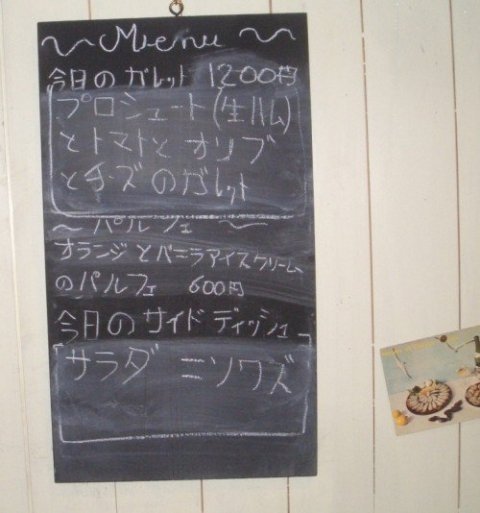 ~ Menu ~
今日のガレット 1200円
プロシュート(生ハム)
とトマトとオリブ
とチーズのガレット
~ パルフェ ~
オランジとバニラアイスクリーム
のパルフェ 600円
今日のサイドディッシュ
サラダ ニソワズ